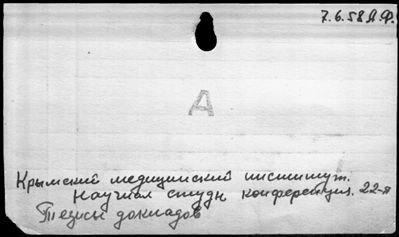 7.6.58 Я.Ф.
А
Крымский медицинский институт.
Научная студ. конференция. 22-я
Тезисы докладов